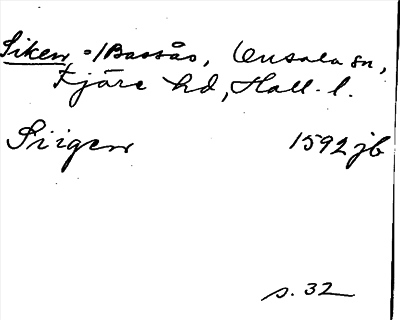 Siken, =/Bassås, Onsala sn,
Fjäre hd, Hall. l.
Siigen 1592 jb
s. 32